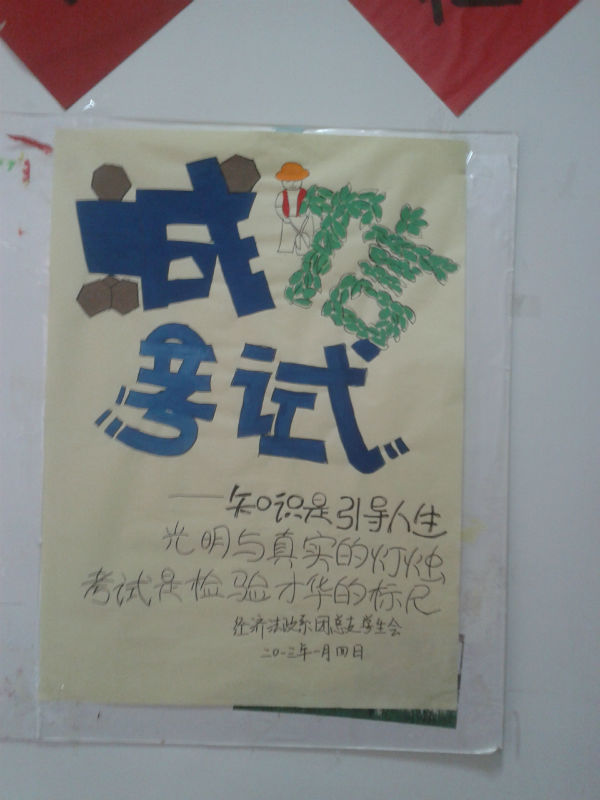 诚信
考试
——知识是引导人生
光明与真实的灯烛
考试是检验才华的标尺
经济法政系团总支学生会
二〇一三年一月四日